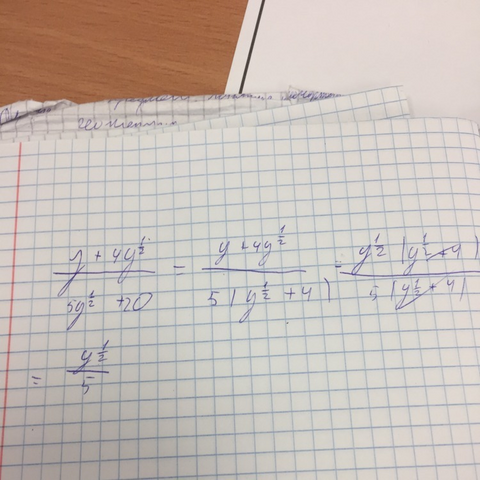 y + 4y^{1/2} / 5y^{1/2} + 20 = y + 4y^{1/2} / 5(y^{1/2} + 4) = y^{1/2} (y^{1/2} + 4) / 5(y^{1/2} + 4)
= y^{1/2} / 5